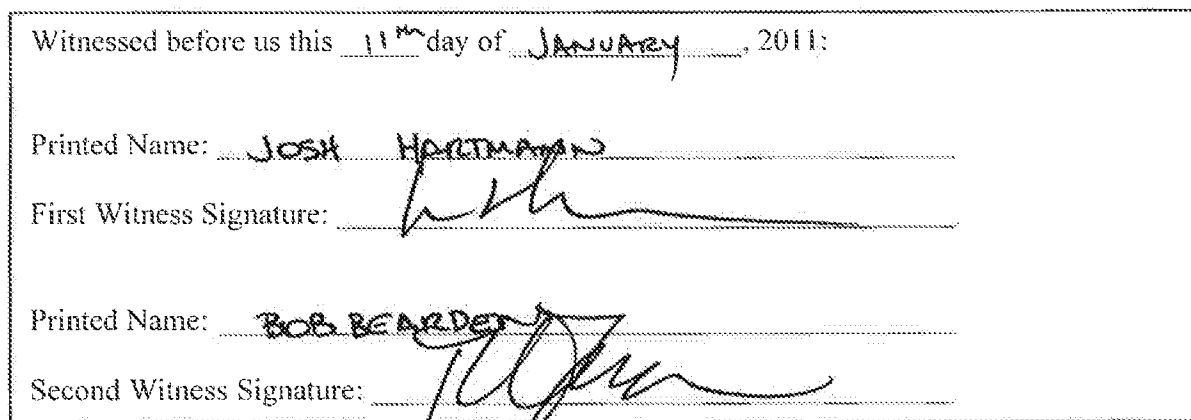 Witnessed before us this 11th day of JANUARY, 2011:
Printed Name: JOSH HARTMANN
First Witness Signature:
Printed Name: BOB BEARDEN
Second Witness Signature: